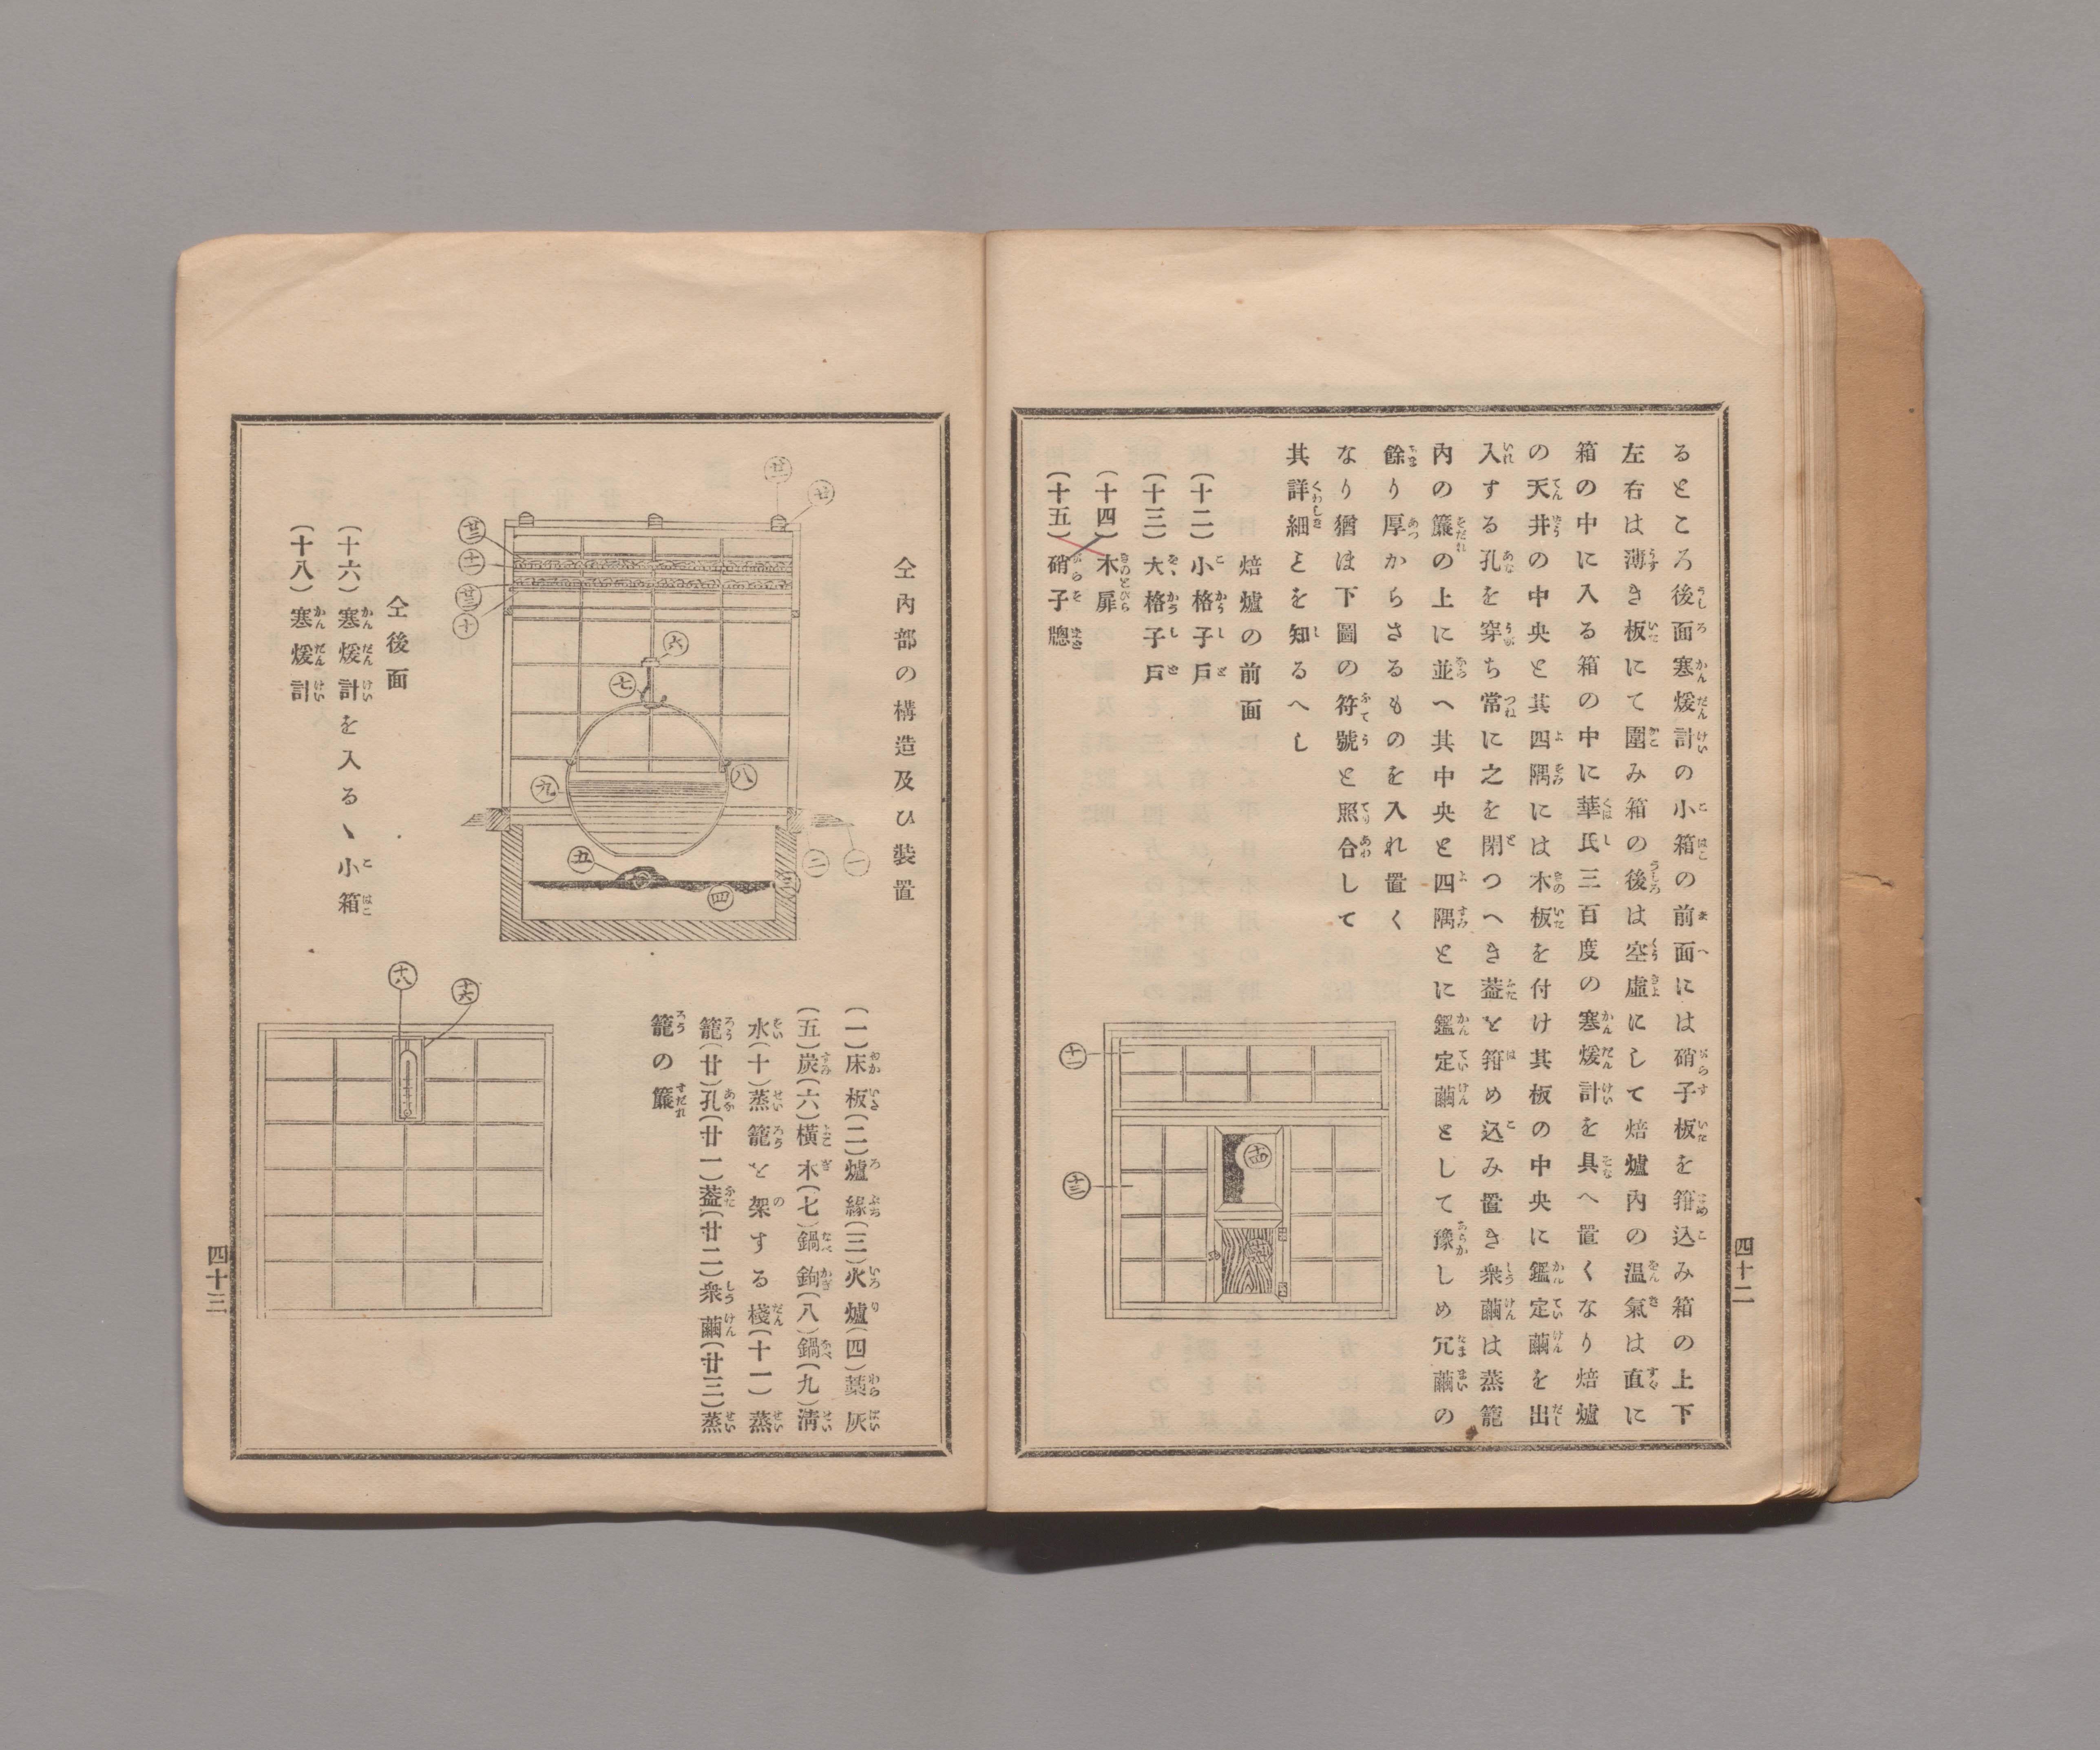 るところ後面寒煖計の小箱の前面には硝子板を箝込み箱の上下
左右は薄き板にて圍み箱の後は空虛にして焙爐内の温氣は直に
箱の中に入る箱の中に華氏三百度の寒煖計を具へ置くなり焙爐
の天井の中央と其四隅には木板を付け其板の中央に鑑定繭を出
入する孔を穿ち常に之を閉つへき葢を箝め込み置き衆繭は蒸籠
内の簾の上に並へ其中央と四隅とに鑑定繭として豫しめ冗繭の
餘り厚からさるものを入れ置く
なり猶は下圖の符號と照合して
其詳細を知るへし
焙爐の前面
(十二)小格子戸
(十三)大格子戸
(十四)木扉
(十五)硝子牕
十二
十三
十四
四十二
仝内部の構造及ひ裝置
(一)床板(二)爐緣(三)火爐(四)藁灰
(五)炭(六)橫木(七)鍋鉤(八)鍋(九)淸
水(十)蒸籠を架する棧(十一)蒸
籠(廿)孔(廿一)葢(廿二)衆繭(廿三)蒸
籠の簾
廿一
廿
廿三
十一
廿二
十
六
七
八
九
五
一
二
三
四
仝後面
(十六)寒煖計を入るゝ小箱
(十八)寒煖計
十八
十六
四十三